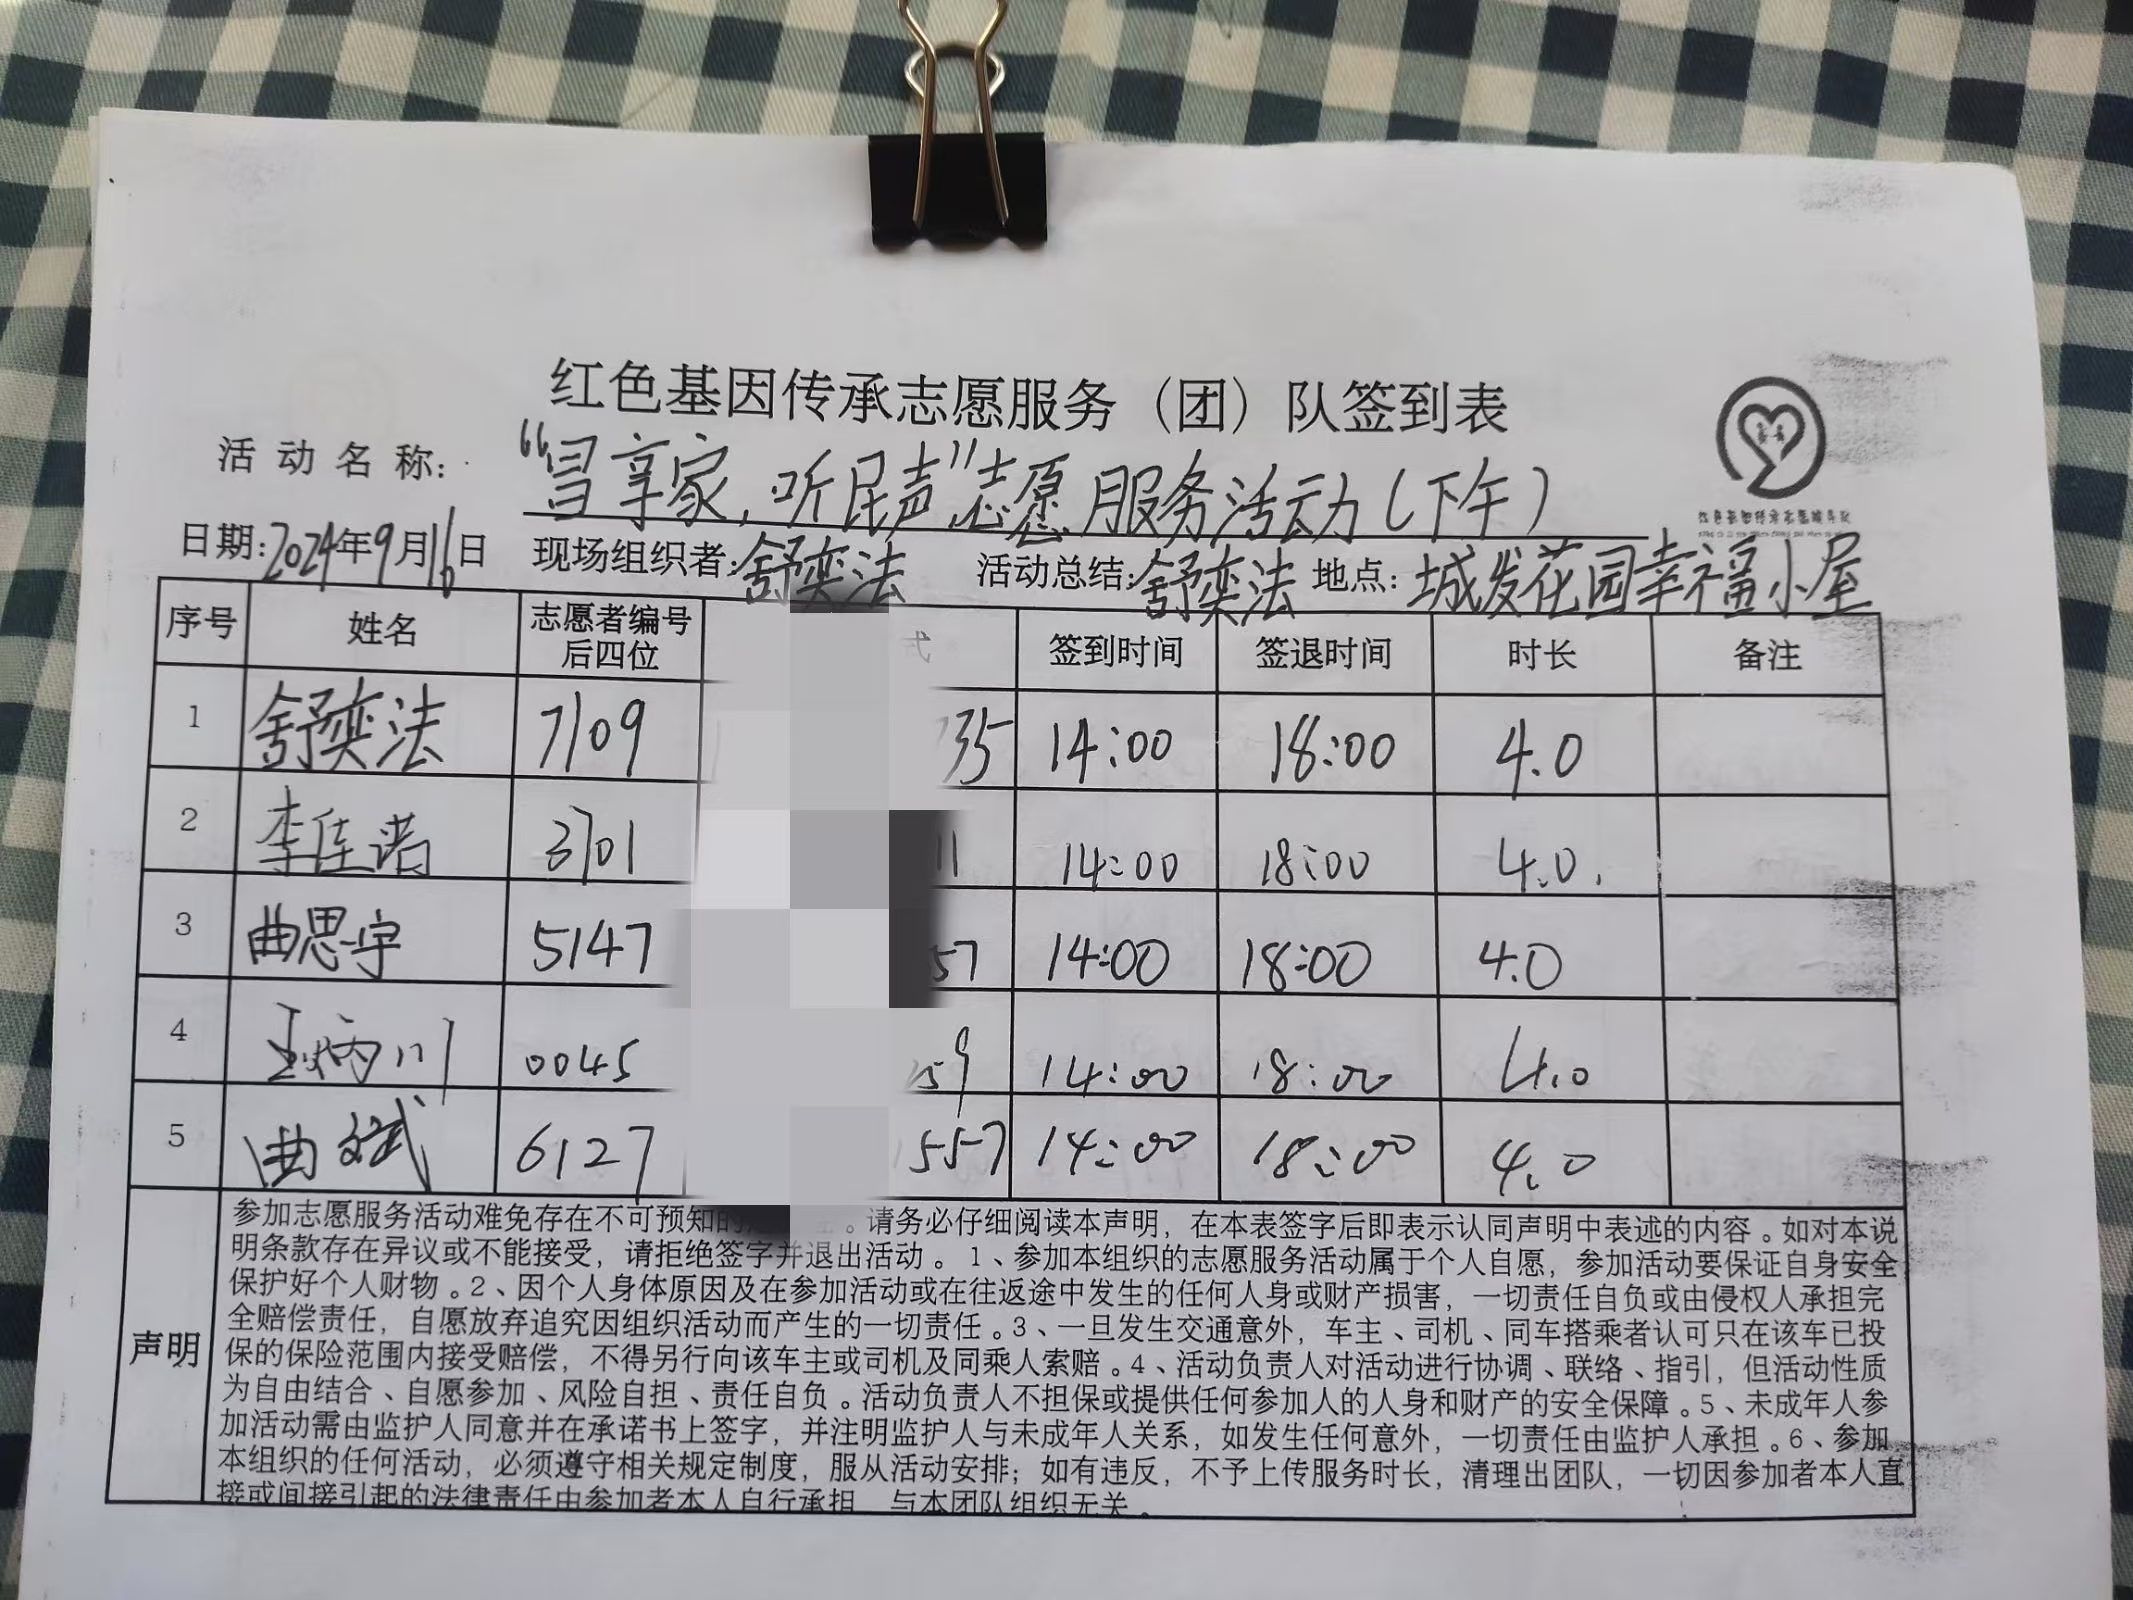 红色基因传承志愿服务（团）队签到表
活动名称：“冒享家，听民声”志愿服务活动（下午）
日期：2024年9月16日 现场组织者：舒奕法 活动总结：舒奕法 地点：城发花园幸福小屋
序号 姓名 志愿者编号后四位 式 签到时间 签退时间 时长 备注
1 舒奕法 7109 35 14:00 18:00 4.0
2 李佳诺 3701 11 14:00 18:00 4.0.
3 曲思宇 5147 57 14:00 18:00 4.0
4 王炳川 0045 59 14:00 18:00 4.0
5 曲文斌 6127 1557 14:00 18:00 4.0
声明
参加志愿服务活动难免存在不可预知的 。请务必仔细阅读本声明，在本表签字后即表示认同声明中表述的内容。如对本说
明条款存在异议或不能接受，请拒绝签字并退出活动。1、参加本组织的志愿服务活动属于个人自愿，参加活动要保证自身安全
保护好个人财物。2、因个人身体原因及在参加活动或在往返途中发生的任何人身或财产损害，一切责任自负或由侵权人承担完
全赔偿责任，自愿放弃追究因组织活动而产生的一切责任。3、一旦发生交通意外，车主、司机、同车搭乘者认可只在该车已投
保的保险范围内接受赔偿，不得另行向该车主或司机及同乘人索赔。4、活动负责人对活动进行协调、联络、指引，但活动性质
为自由结合、自愿参加、风险自担、责任自负。活动负责人不担保或提供任何参加人的人身和财产的安全保障。5、未成年人参
加活动需由监护人同意并在承诺书上签字，并注明监护人与未成年人关系，如发生任何意外，一切责任由监护人承担。6、参加
本组织的任何活动，必须遵守相关规定制度，服从活动安排；如有违反，不予上传服务时长，清理出团队，一切因参加者本人直
接或间接引起的法律责任由参加者本人自行承担，与本团队组织无关。